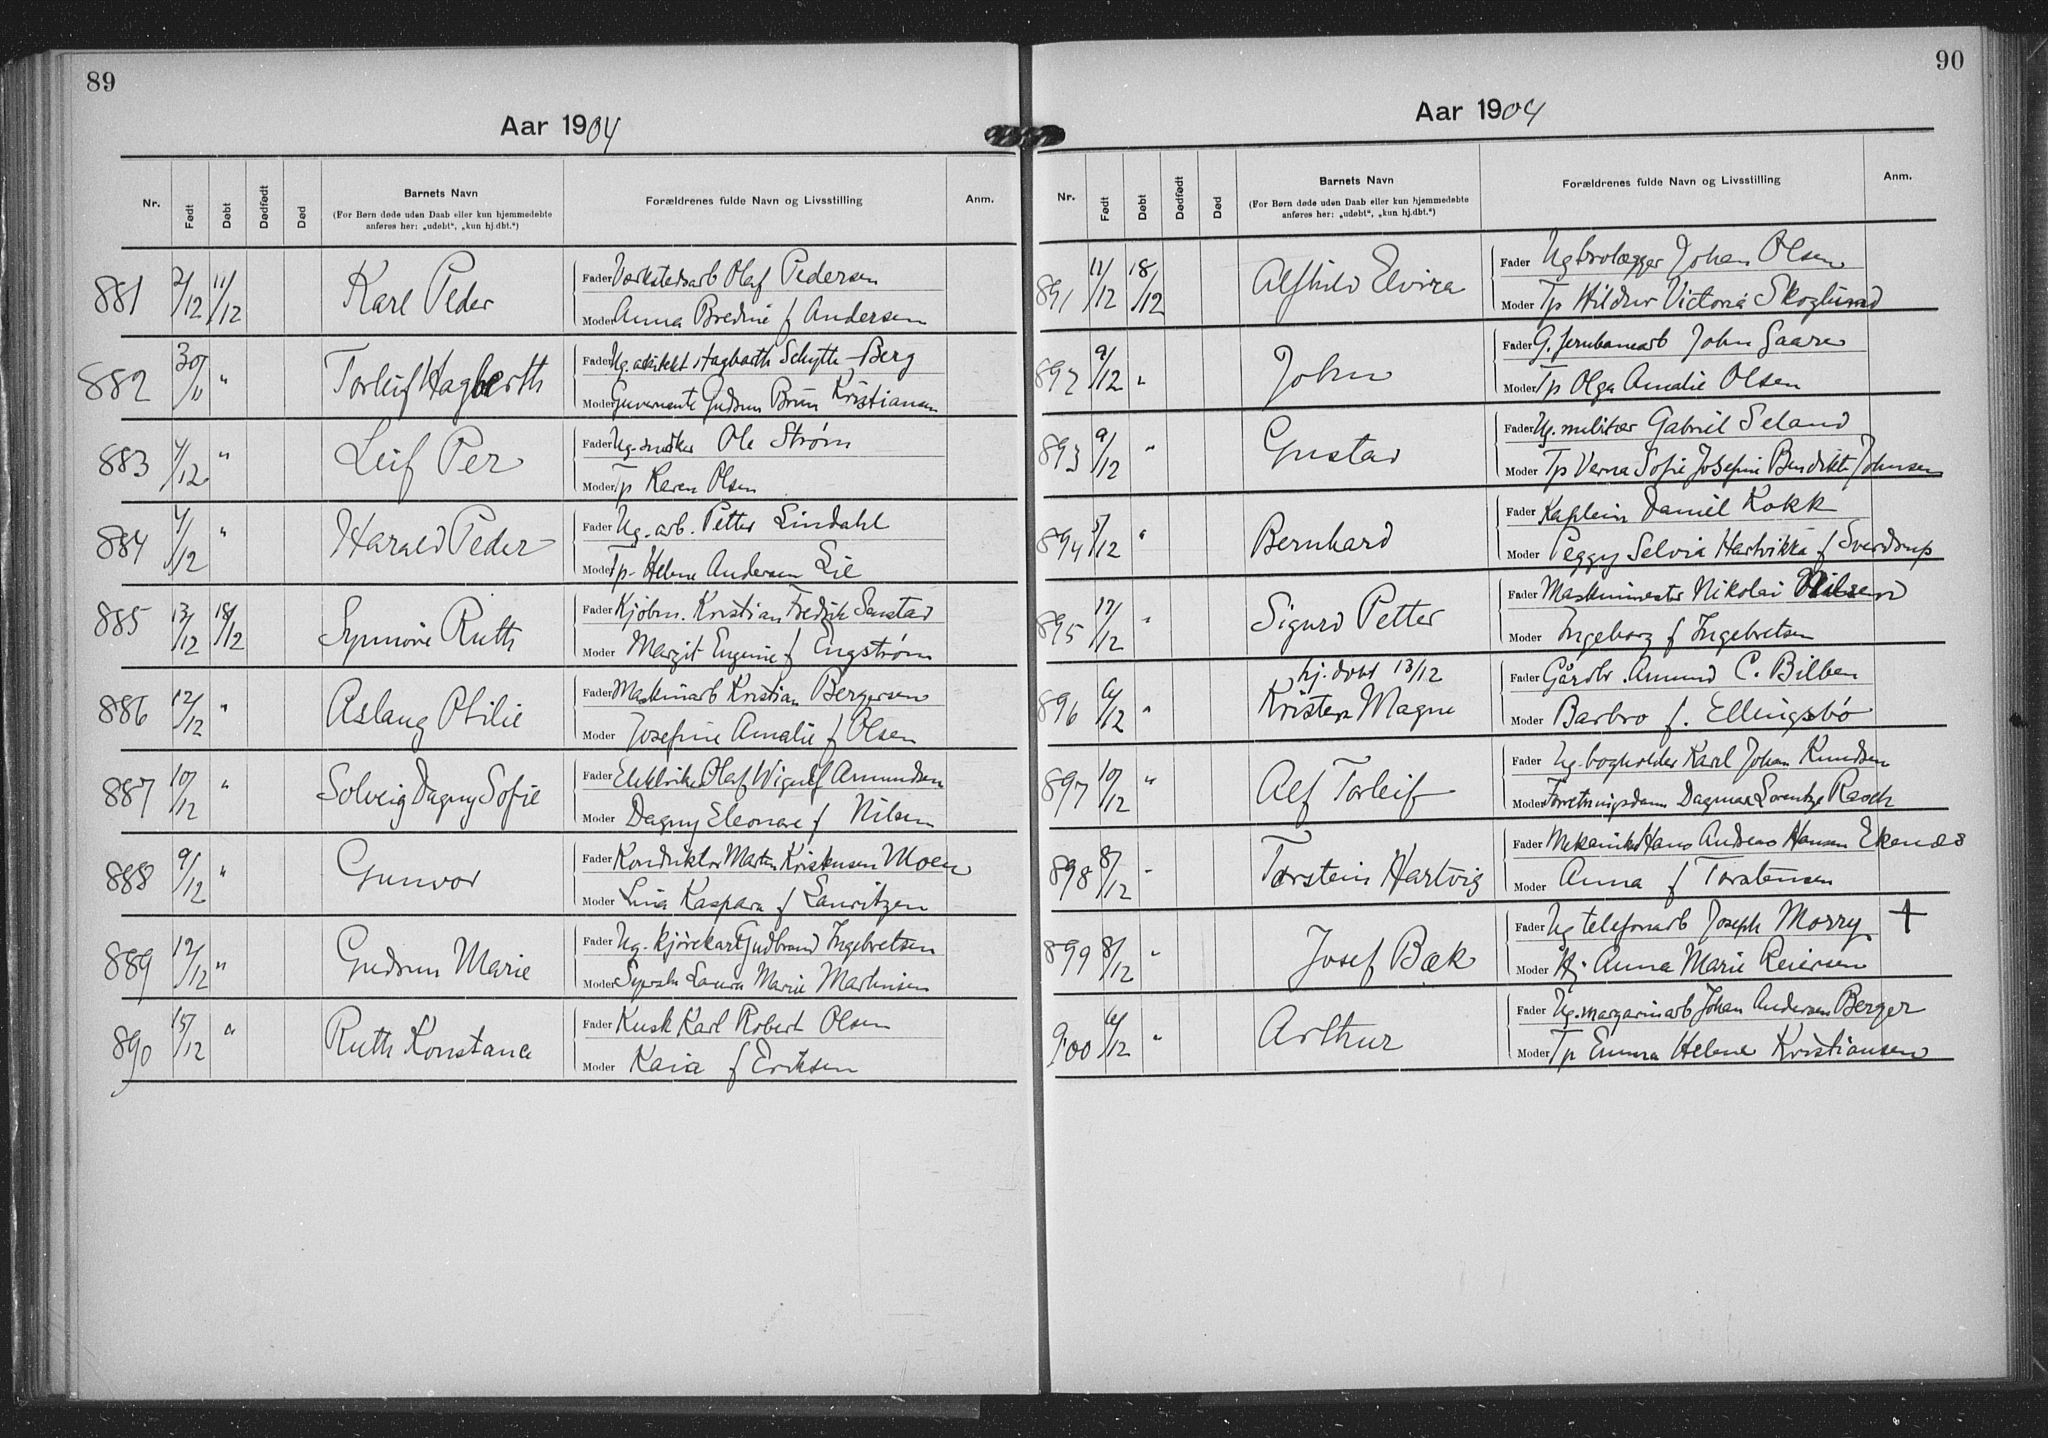 89
Aar 1904
Nr. Født Døbt Dødfødt Død Barnets Navn Forældrenes fulde Navn og Livsstilling Anm.
(For Børn døde uden Daab eller kun hjemmedøbte
anføres her: „udøbt“, „kun hj.dbt.“)
881 2/12 11/12 Karl Peder Fader Værkstedsarb Olaf Pedersen
Moder Anna Bredine f Andersen
882 30/11 " Torleif Hagbarth Fader Ug. arkitekt Hagbarth Schytte-Berg
Moder Guvernante Gudrun Brun Kristiansen
883 4/12 " Leif Per Fader Ug. Ole Strøm
Moder Tp Karen Olsen
884 4/12 " Harald Peder Fader Ug. arb. Petter Lindahl
Moder Tp. Helene Andersen Lie
885 13/12 18/12 Synnøve Ruth Fader Kjøbm. Kristian Fredrik Senstad
Moder Margit Eugenie f Engstrøm
886 12/12 " Aslaug Otilie Fader Maskinarb Kristian Bergersen
Moder Josefine Amalie f Olsen
887 10/12 " Solveig Dagny Sofie Fader Elektriker Olaf Amundsen
Moder Dagny Eleonore f Nilsen
888 9/12 " Gunvor Fader Konduktør Martin Kristensen Moen
Moder Lina Kaspara f Lauritzen
889 12/12 " Gudrun Marie Fader Ug. kjørekar Gudbrand Ingebretsen
Moder Sypike Laura Marie Martinsen
890 15/12 " Ruth Konstance Fader Kusk Karl Robert Olsen
Moder Kaia f Eriksen
90
Aar 1904
Nr. Født Døbt Dødfødt Død Barnets Navn Forældrenes fulde Navn og Livsstilling Anm.
(For Børn døde uden Daab eller kun hjemmedøbte
anføres her: „udøbt“, „kun hj.dbt.“)
891 11/12 18/12 Alfhild Elvira Fader Ug brolægger Johan Olsen
Moder Tp Hildur Victoria Skoglund
892 9/12 " John Fader G. Jernbanearb John Gaare
Moder Tp Olga Amalie Olsen
893 9/12 " Gustav Fader Ug. militær Gabriel Seland
Moder Tp Verna Sofie Josefine Bendikte Johnsen
894 5/12 " Bernhard Fader Kaptein Daniel Kokk
Moder Peggy Selvia Hartvikka f Sverdrup
895 12/12 " Sigurd Petter Fader Maskinmester Nikolai Nilsen
Moder Ingeborg f Ingebretsen
hj. døbt 13/12
896 6/12 " Kristen Magne Fader Gårdbr. Amund C. Bilben
Moder Barbro f. Ellingsbø
897 10/12 " Alf Torleif Fader Ug. bogholder Karl Johan Knudsen
Moder Forretningsdame Dagmar Lorentze Rasch
898 8/12 " Torstein Hartvig Fader Mekaniker Hans Andreas Hansen Ekenæs
Moder Anna f Torstensen
899 8/12 " Josef Bæk Fader Ug telefonarb Joseph Morry +
Moder Hj Anna Marie Reiersen
900 6/12 " Arthur Fader Ug. margarinarb Johan Andersen Berger
Moder Tp Emma Helene Kristiansen